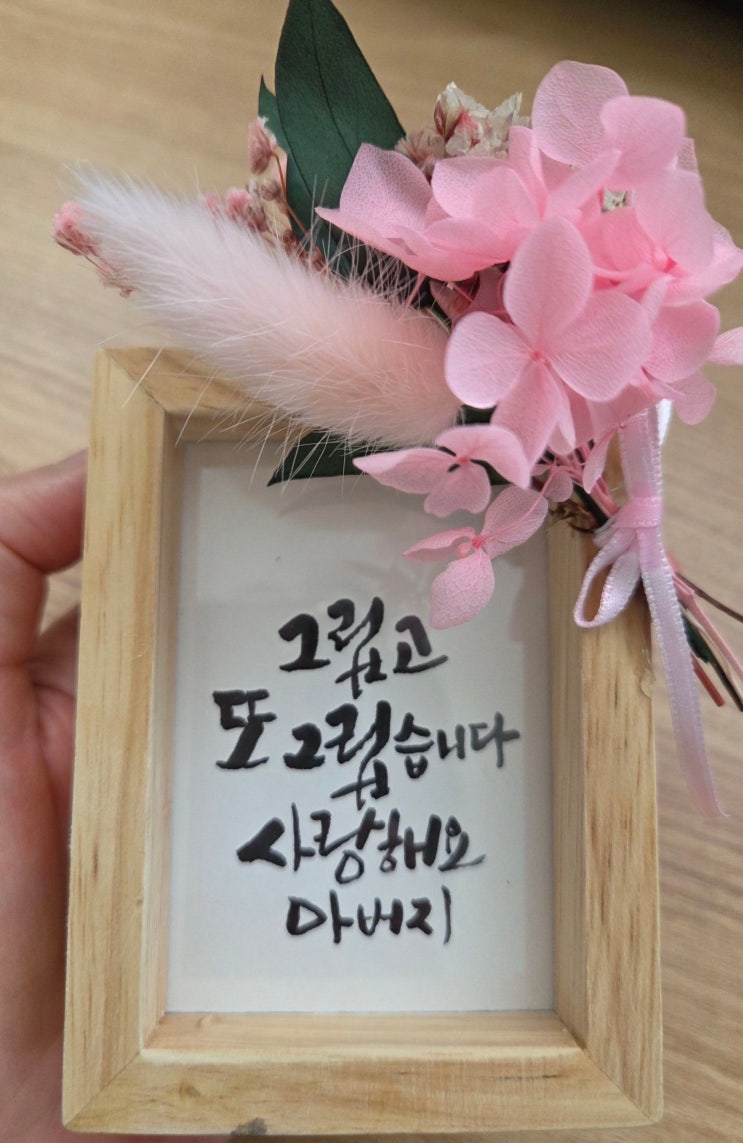 그립고
또 그립습니다
사랑해요
아버지